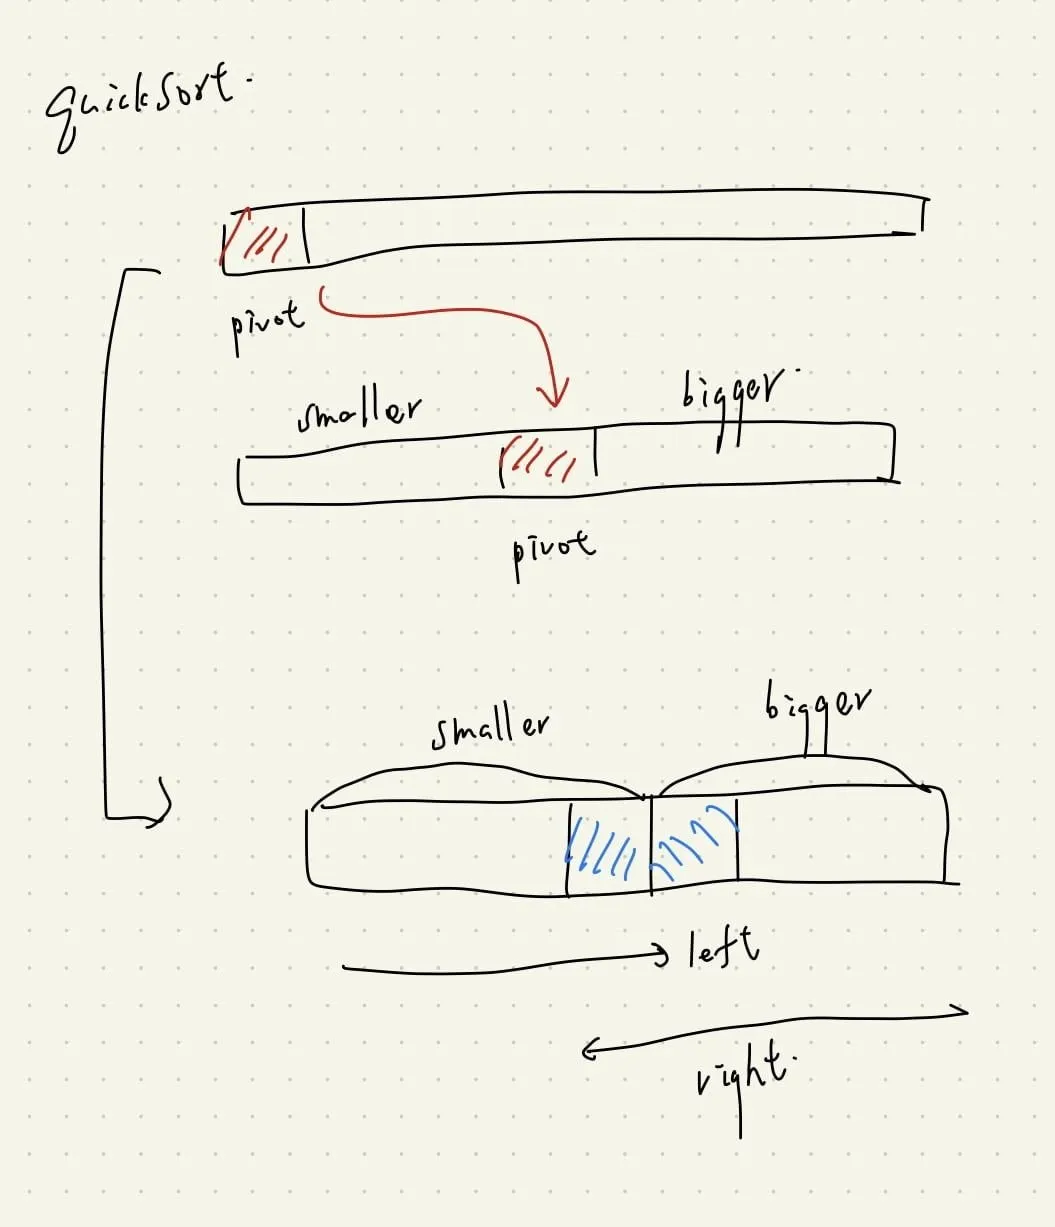 quickSort.
pivot
smaller
bigger.
pivot
smaller
bigger
left
right.